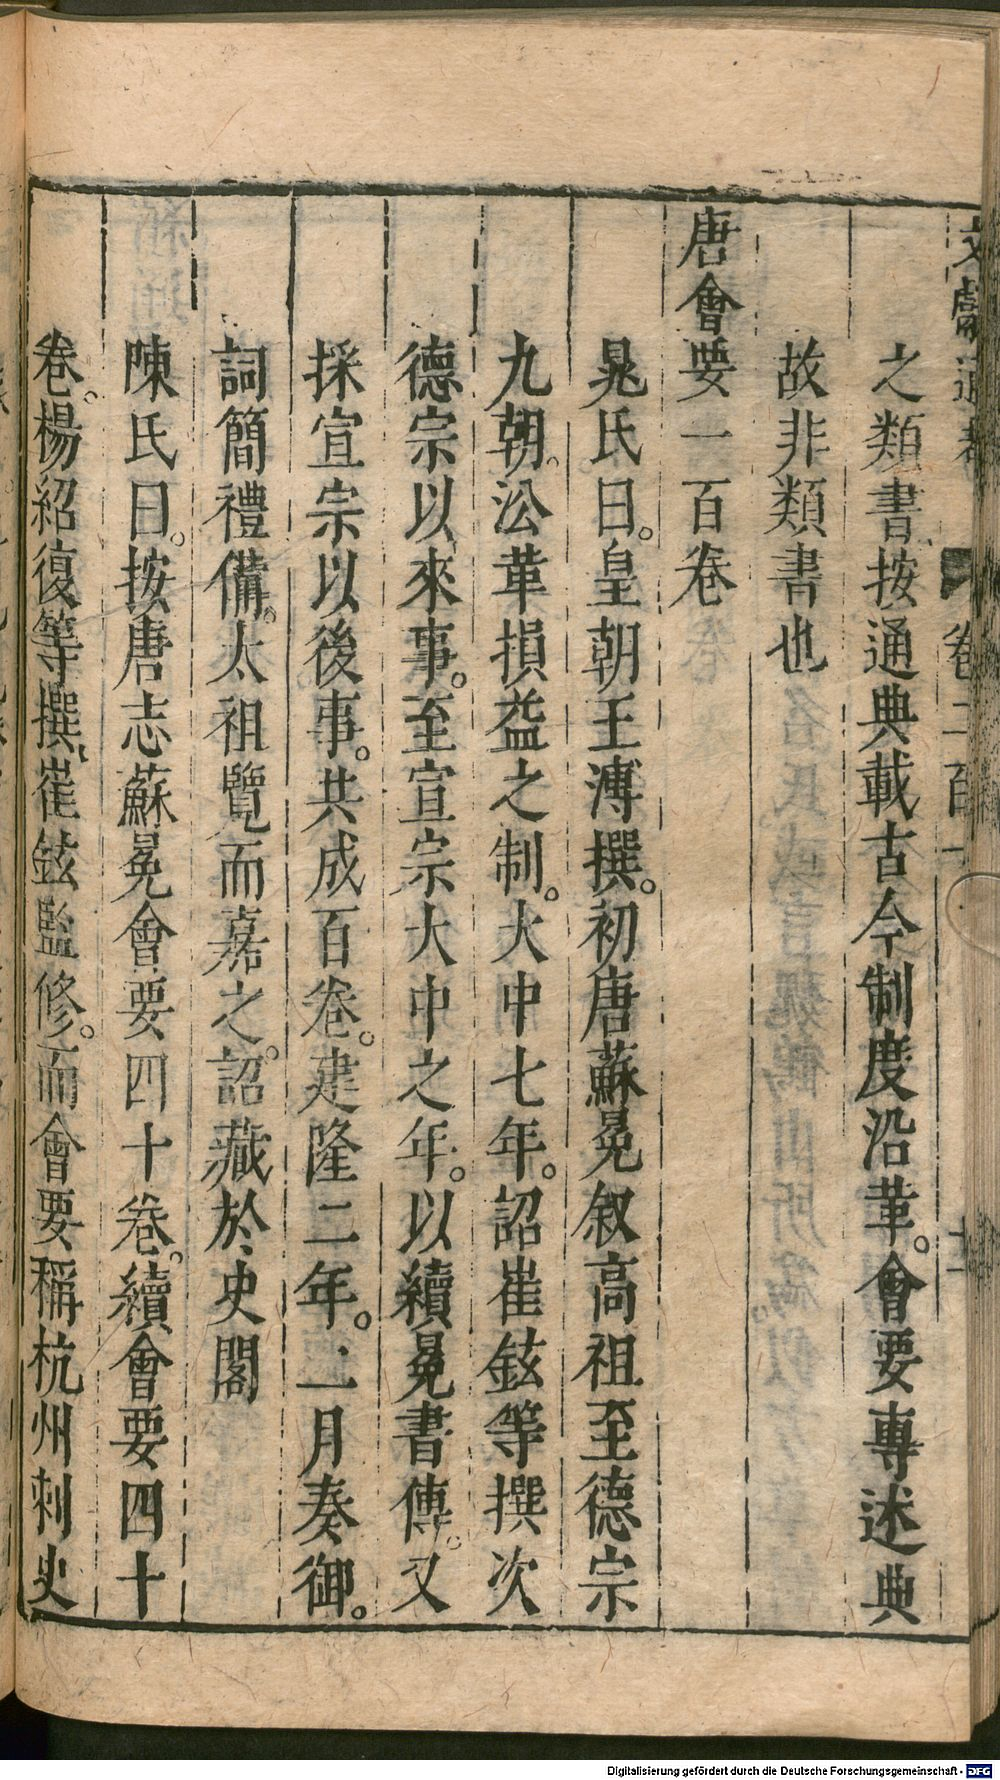 文獻通考 卷二百一 十一
之類書按通典載古今制度沿革。會要專述典
故非類書也
唐會要一百卷
晁氏曰。皇朝王溥撰。初唐蘇冕叙高祖至德宗
九朝。㳂革損益之制。大中七年。詔崔鉉等撰次
德宗以來事。至宣宗大中之年。以續冕書傳。又
採宣宗以後事。共成百卷。建隆二年。二月奏御。
詞簡禮備。太祖覽而嘉之。詔藏於史閣
陳氏曰。按唐志蘇冕會要四十卷。續會要四十
卷。楊紹復等撰、崔鉉監修。而會要稱杭州刺史
Digitalisierung gefördert durch die Deutsche Forschungsgemeinschaft - DFG